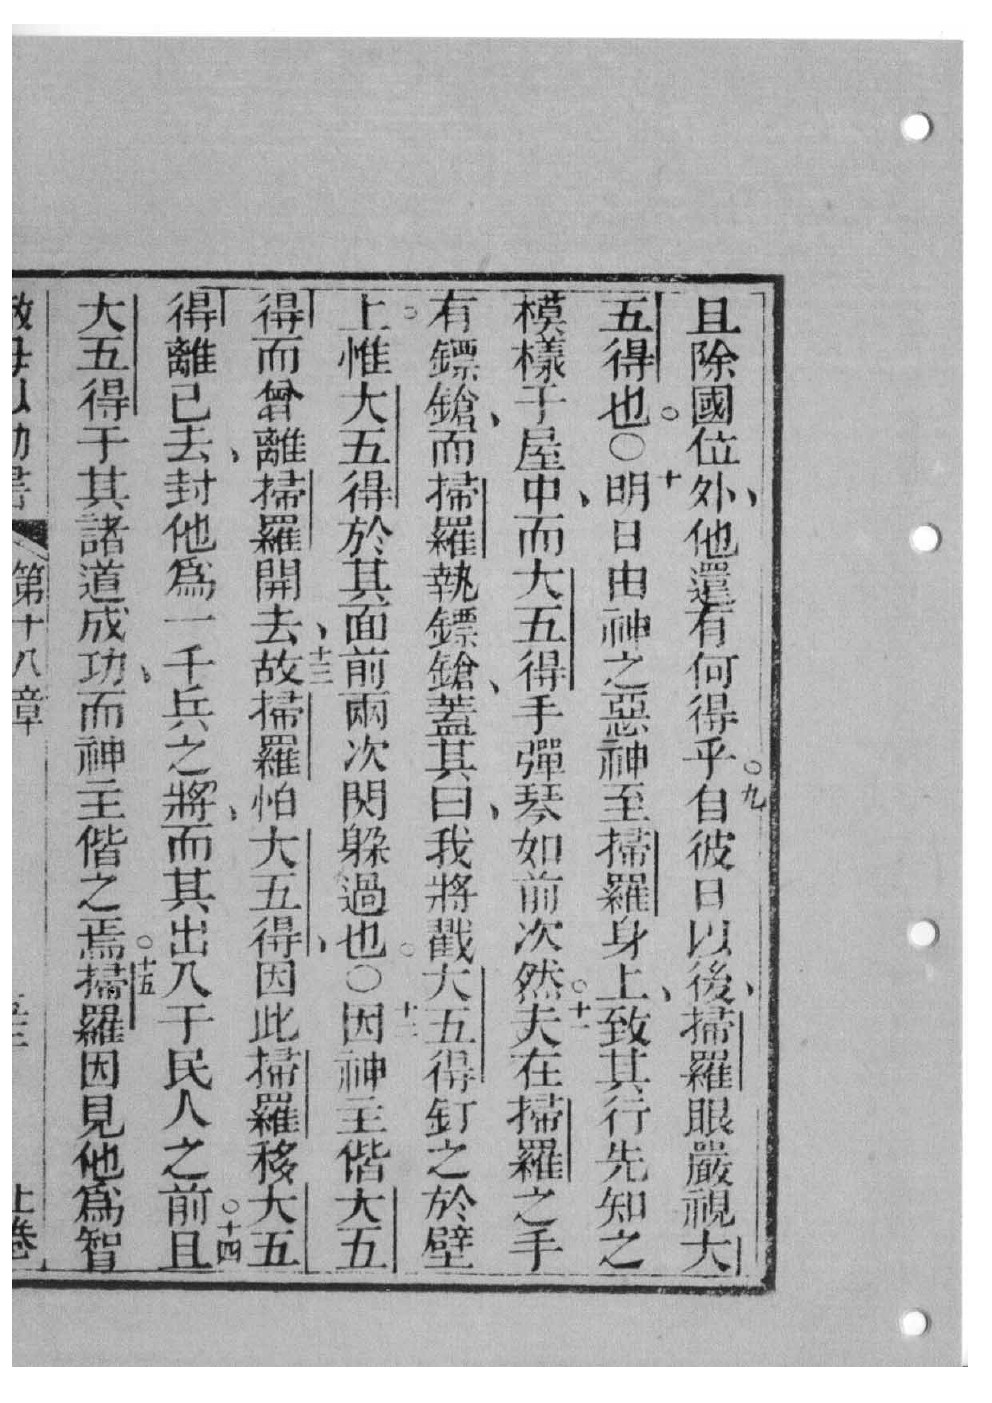 且除國位外、他還有何得乎○九自彼日以後、掃羅眼嚴視大
五得也。○十明日由神之惡神至掃羅身上、致其行先知之
模樣于屋中、而大五得手彈琴如前次然○十一夫在掃羅之手
有鏢鎗、而掃羅執鏢鎗、蓋其曰、我將戳大五得釘之於壁
上○惟大五得於其面前兩次閃躲過也○○十二因神主偕大五
得而曾離掃羅開去、十三故掃羅怕大五得、因此掃羅移大五
得離已去、封他為一千兵之將、而其出入于民人之前○十四且
大五得于其諸道成功、而神主偕之焉○十五掃羅因見他為智
第十八章
上卷